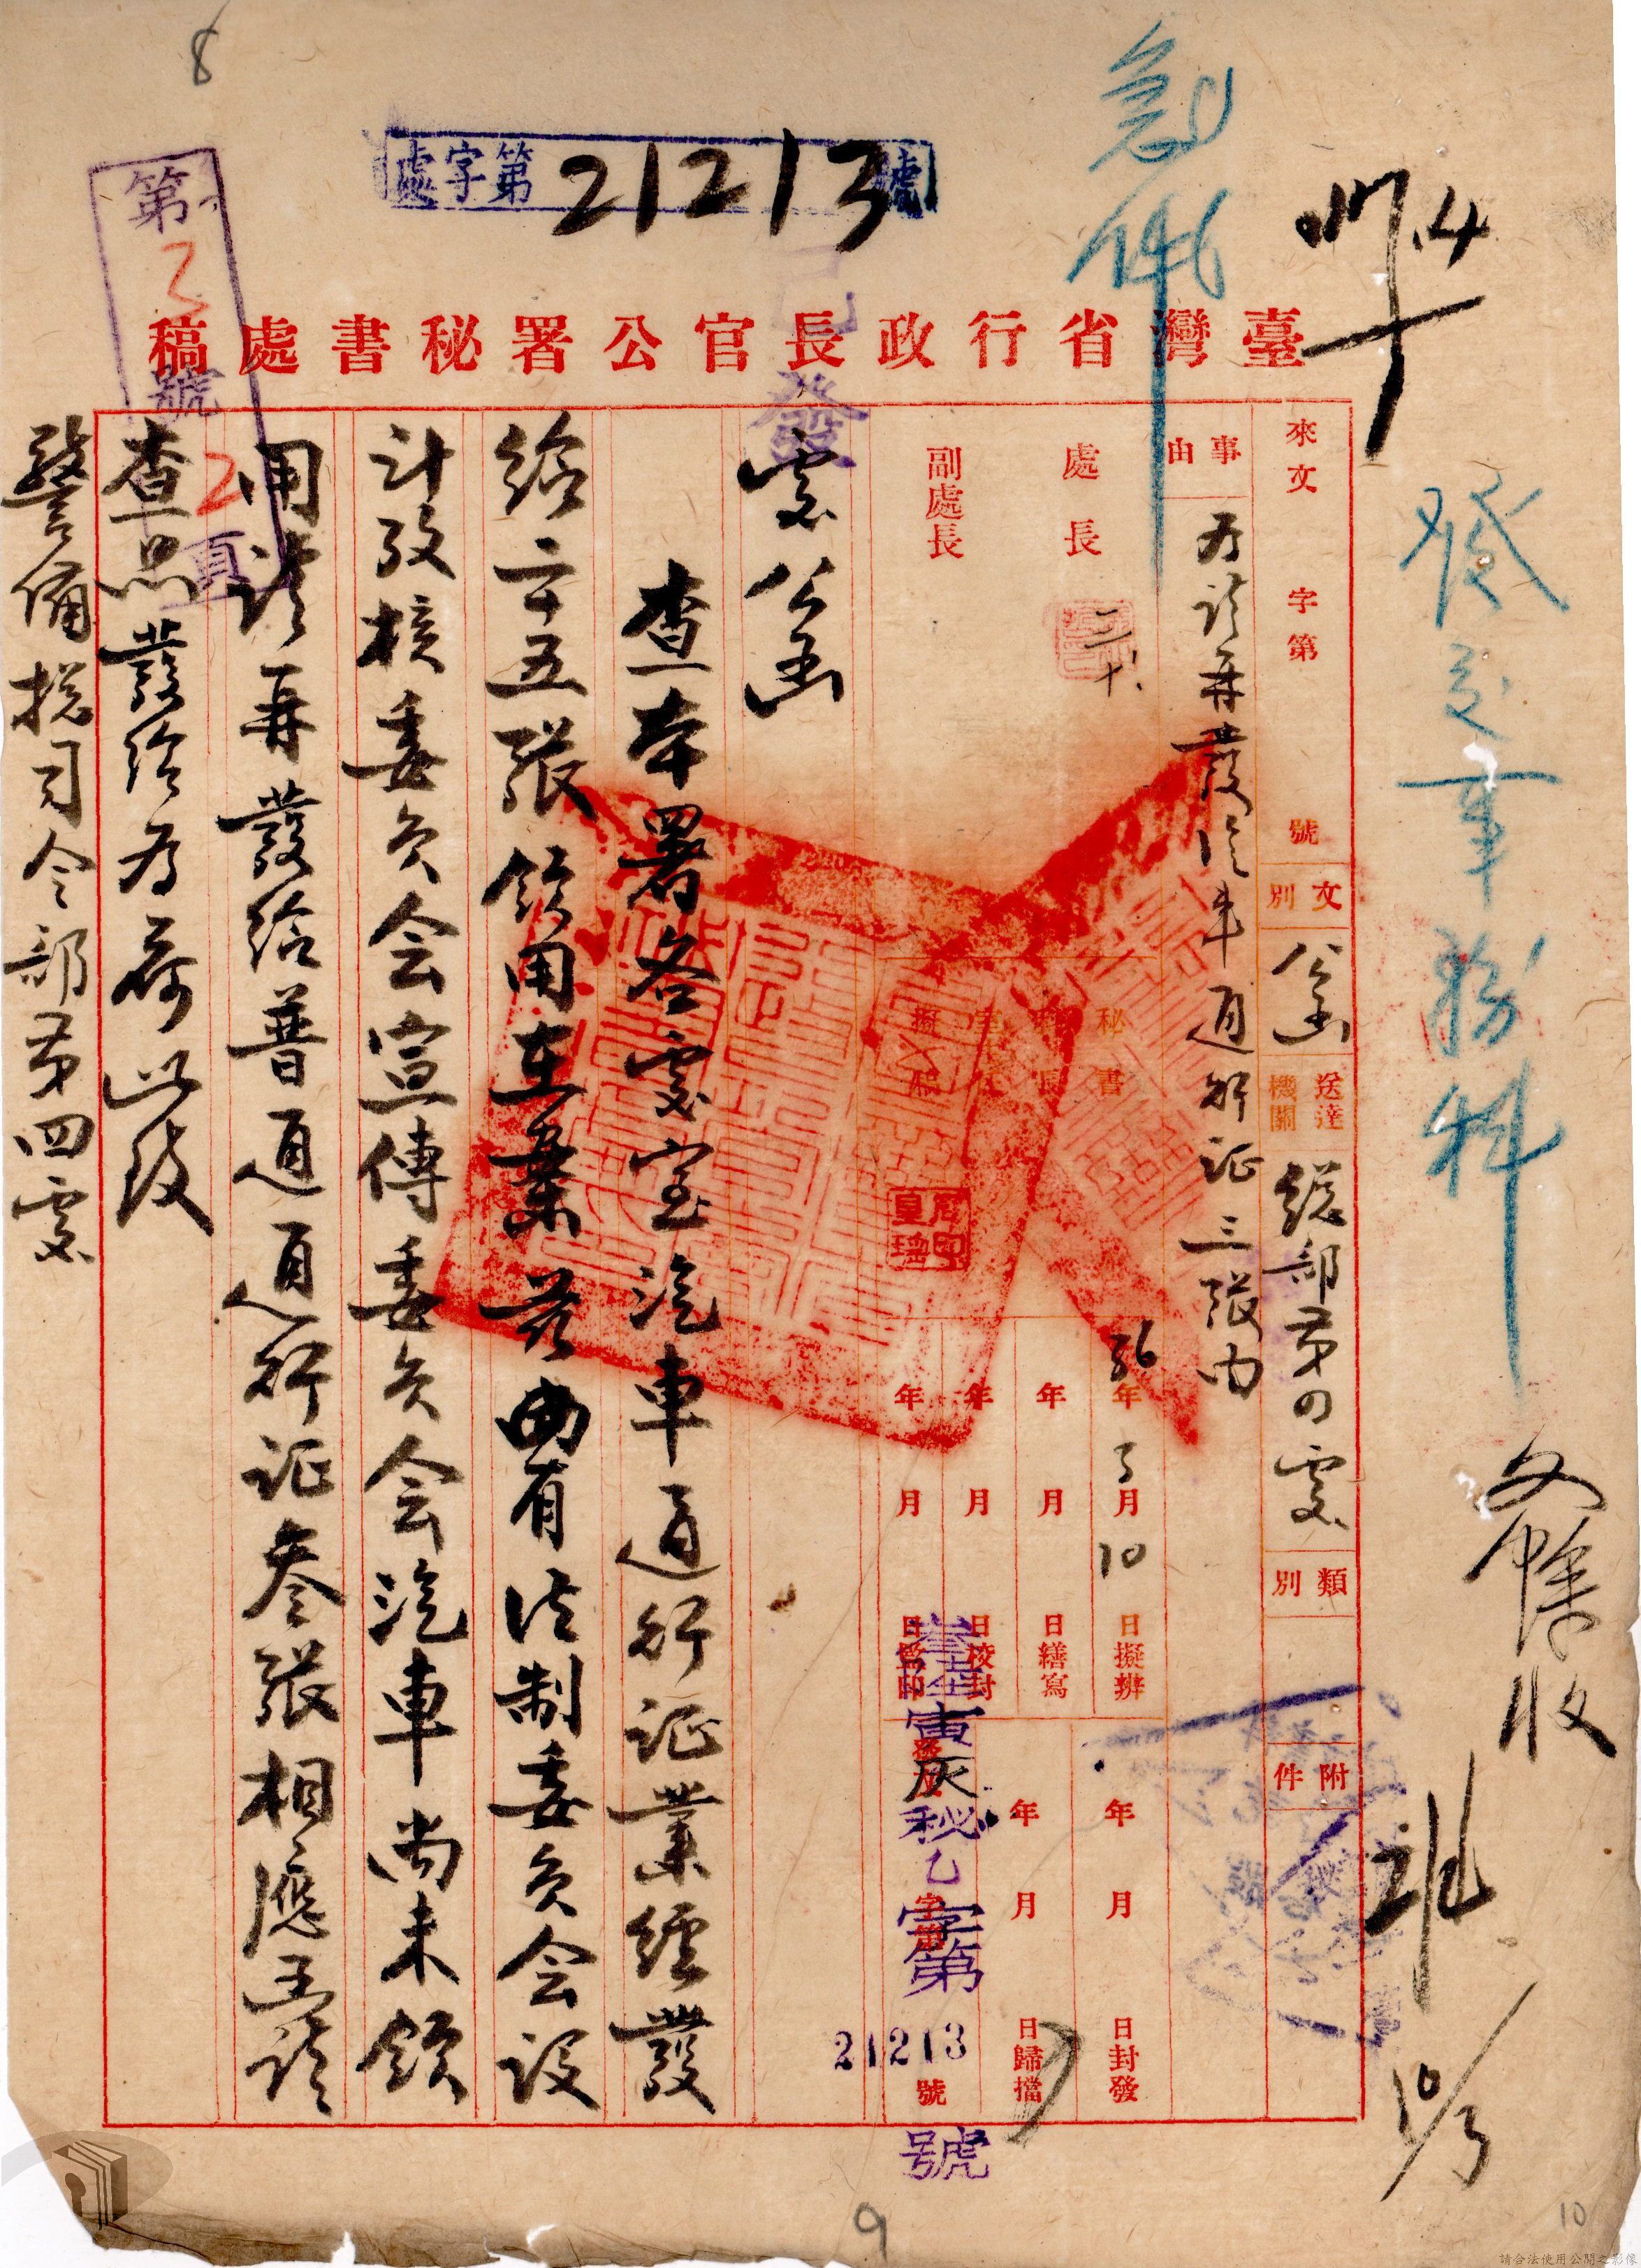 8
處字第21213號
急件
第 號
2頁
已發
臺灣省行政長官公署秘書處稿
發交事務科
來文 字第 號
文別 公函
送達機關 總部第四處
類別
附件
事由 為請再發汽車通行証三張由
處長
副處長
秘書
擬稿
36年3月10日擬辦
年 月 日繕寫
年 月 日校封
年 月 日監印
年 月 日封發
年 月 日歸擋
寅灰秘乙字第21213號
處公函
查本署各處室汽車通行証業經發
給二十五張領用在案茲尚有法制委員会設
計攷核委員会宣傳委員会汽車尚未領
用請再發給普通通行証叁張相應函請
查照發給為荷此致
警備總司令部第四處
9
10
請合法使用公開之影像